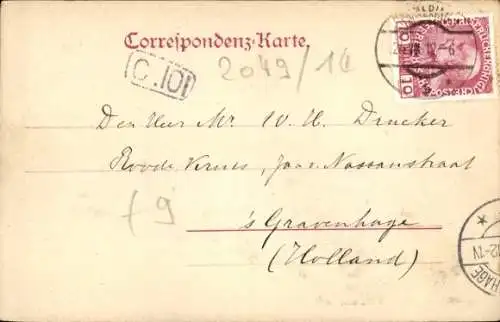 Correspondenz-Karte.
C. 101
2049/1C
Den Heer Mr. W. H. Drucker
Roode Kruis, Jan v. Nassaustraat
f 9
's Gravenhage
(Holland)
HAGE